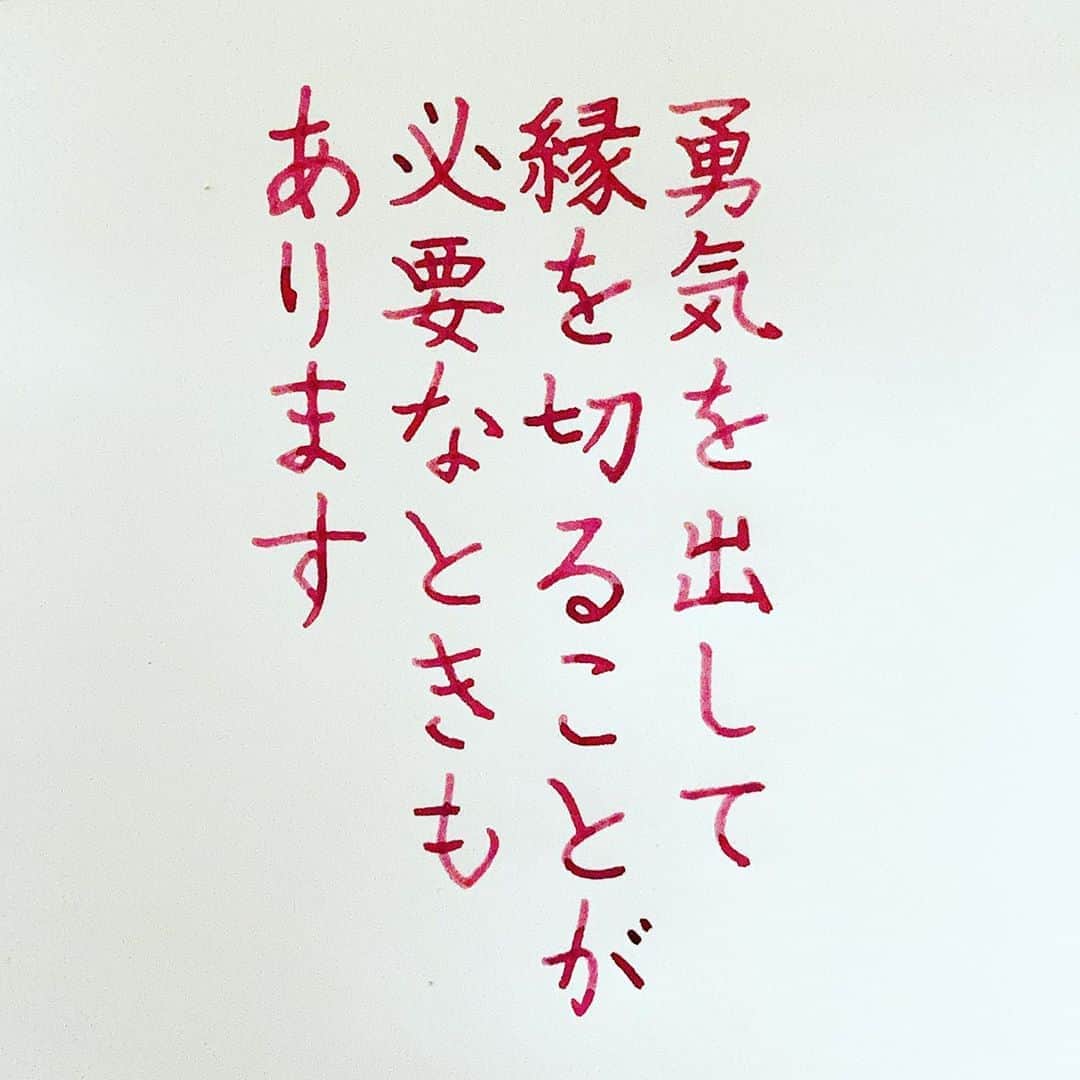 勇気を出して
縁を切ることが
必要なときも
あります